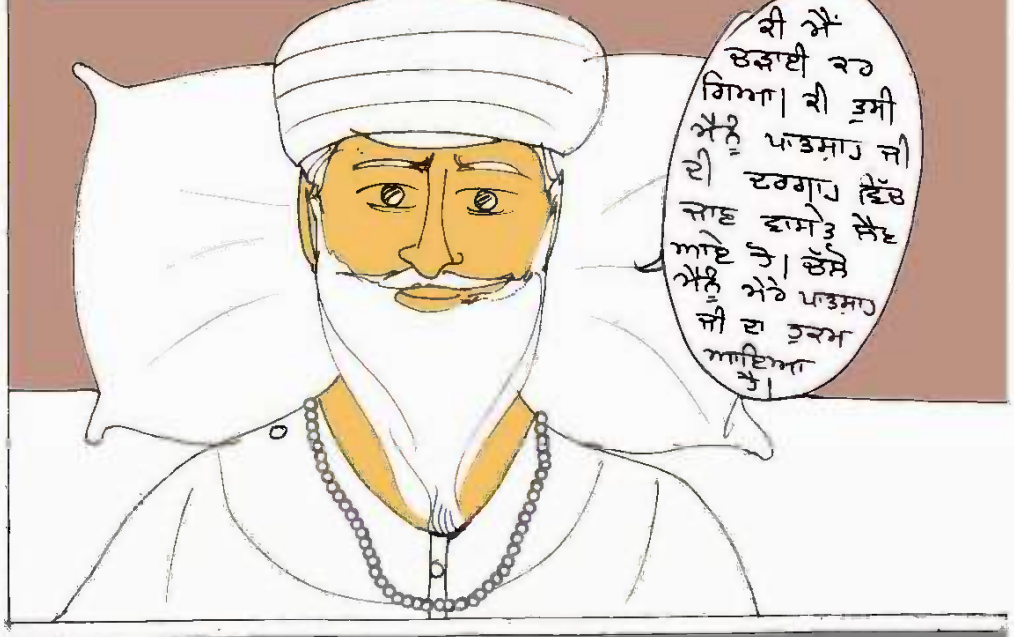 ਕੀ ਮੈਂ
ਚੜਾਈ ਕਰ
ਗਿਆ। ਕੀ ਤੁਸੀ
ਮੈਨੂੰ ਪਾਤਸ਼ਾਹ ਜੀ
ਦੀ ਦਰਗਾਹ ਵਿੱਚ
ਜਾਣ ਵਾਸਤੇ ਲੈਣ
ਆਏ ਹੋ। ਚੱਲੋ
ਮੈਨੂੰ ਮੇਰੇ ਪਾਤਸ਼ਾਹ
ਜੀ ਦਾ ਹੁਕਮ
ਆਇਆ
ਹੈ।